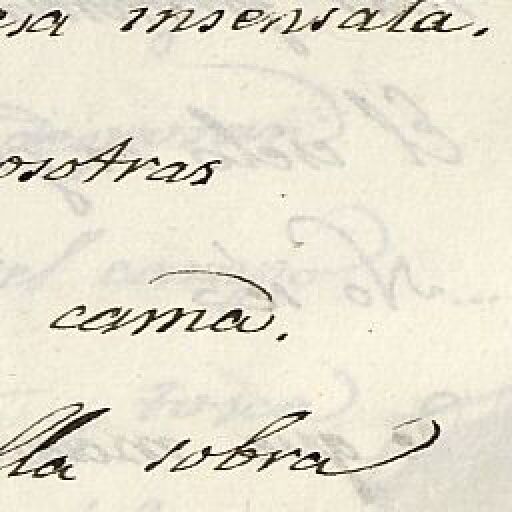 esa insensata.
osotras
cama.
lla sobra